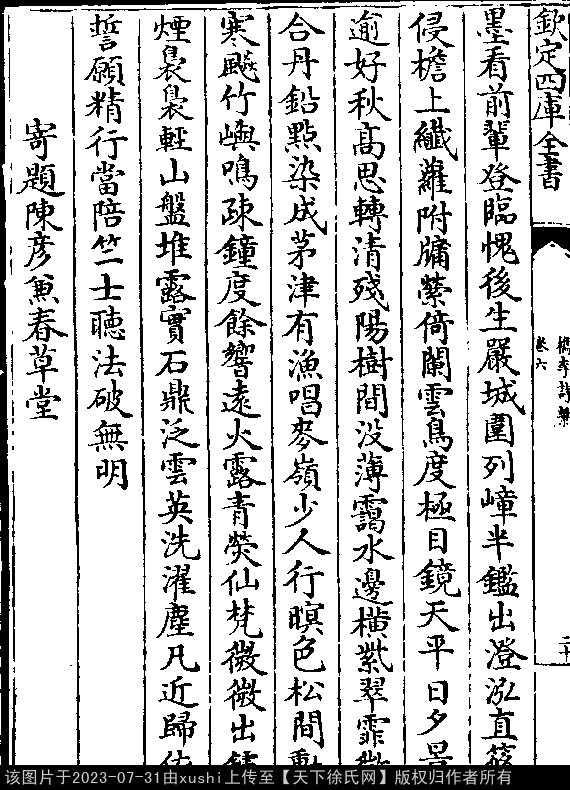 欽定四庫全書
檇李詩繫
卷六
墨看前輩登臨愧後生嚴城圍列嶂半鑑出澄泓直筱
侵檐上纖蘿附牗縈倚闌雲鳥度極目鏡天平日夕景
逾好秋高思轉清殘陽樹間没薄靄水邊横紫翠霏
合丹鉛點染成茅津有漁唱麥嶺少人行暝色松間動
寒飈竹嶼鳴疎鐘度餘響逺火露青熒仙梵微微出
煙裊裊輕山盤堆露實石鼎泛雲英洗濯塵凡近歸依
誓願精行當陪竺士聽法破無明
寄題陳彦兼春草堂
该图片于2023-07-31由xushi上传至【天下徐氏网】版权归作者所有